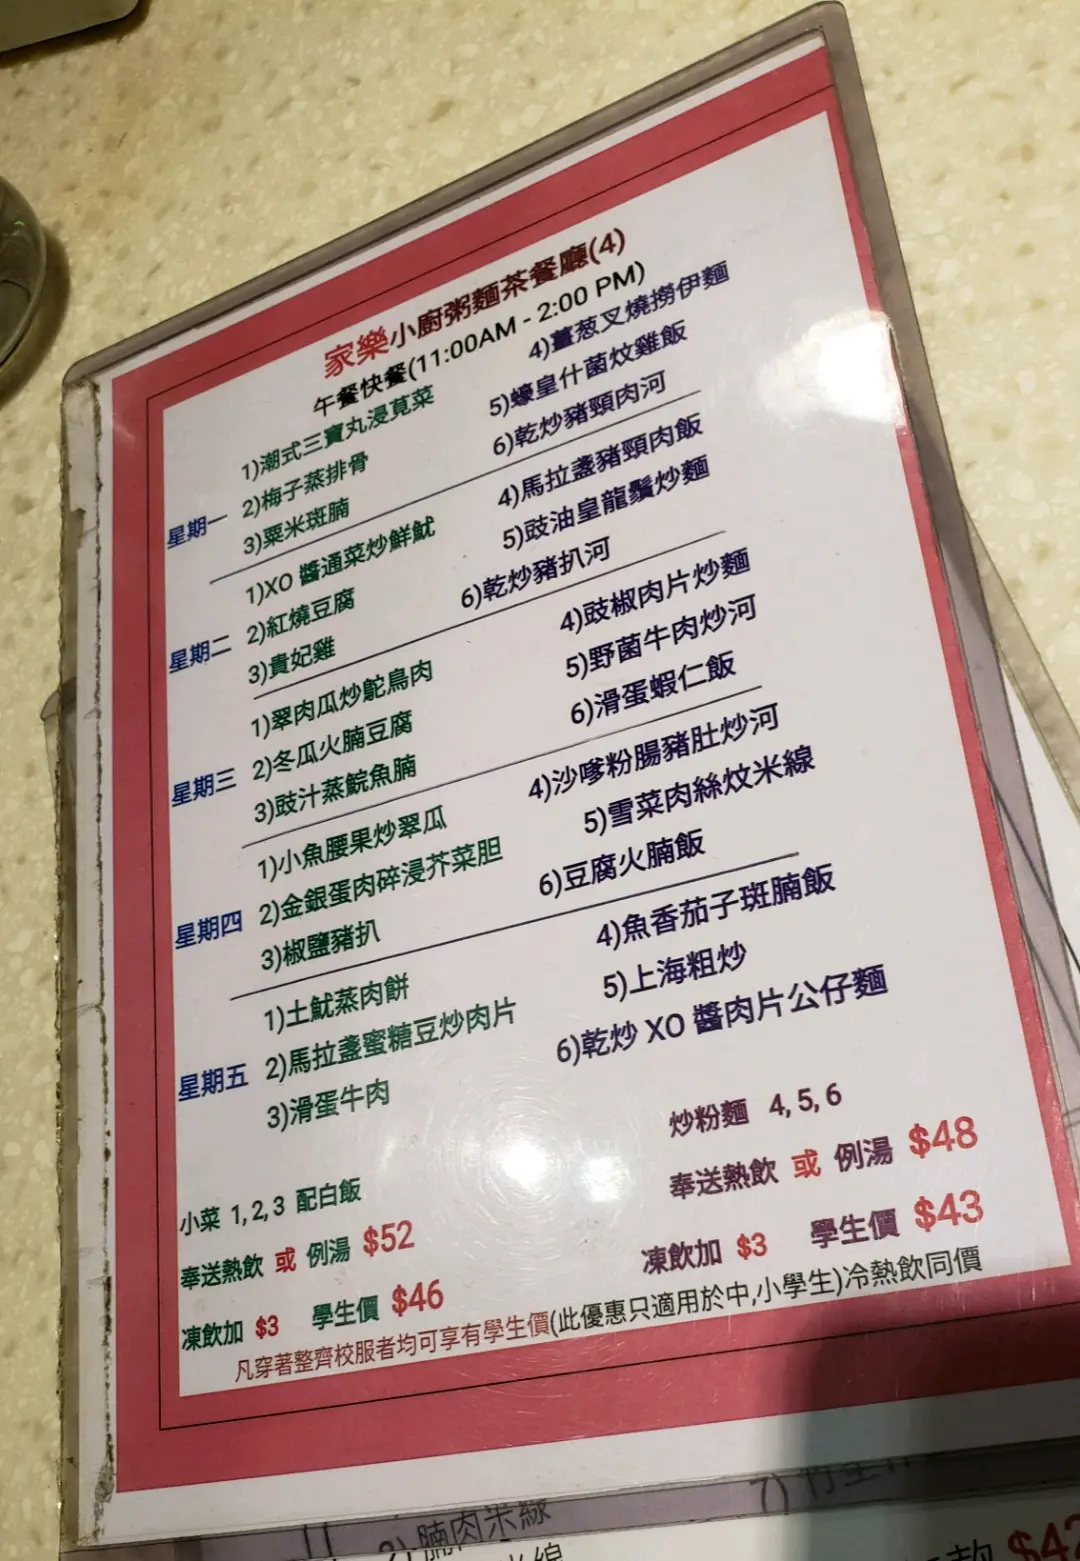 家樂小廚粥麵茶餐廳(4)
午餐快餐(11:00AM - 2:00 PM)
星期一
1)潮式三寶丸浸莧菜
2)梅子蒸排骨
3)粟米斑腩
4)薑葱叉燒撈伊麵
5)蠔皇什菌炆雞飯
6)乾炒豬頸肉河
星期二
1)XO 醬通菜炒鮮魷
2)紅燒豆腐
3)貴妃雞
4)馬拉盞豬頸肉飯
5)豉油皇龍鬚炒麵
6)乾炒豬扒河
星期三
1)翠肉瓜炒鴕鳥肉
2)冬瓜火腩豆腐
3)豉汁蒸鯇魚腩
4)豉椒肉片炒麵
5)野菌牛肉炒河
6)滑蛋蝦仁飯
星期四
1)小魚腰果炒翠瓜
2)金銀蛋肉碎浸芥菜胆
3)椒鹽豬扒
4)沙嗲粉腸豬肚炒河
5)雪菜肉絲炆米線
6)豆腐火腩飯
星期五
1)土魷蒸肉餅
2)馬拉盞蜜糖豆炒肉片
3)滑蛋牛肉
4)魚香茄子斑腩飯
5)上海粗炒
6)乾炒 XO 醬肉片公仔麵
小菜 1, 2, 3 配白飯
奉送熱飲 或 例湯 $52
凍飲加 $3 學生價 $46
炒粉麵 4, 5, 6
奉送熱飲 或 例湯 $48
凍飲加 $3 學生價 $43
凡穿著整齊校服者均可享有學生價(此優惠只適用於中,小學生)冷熱飲同價
腩肉米線
7)